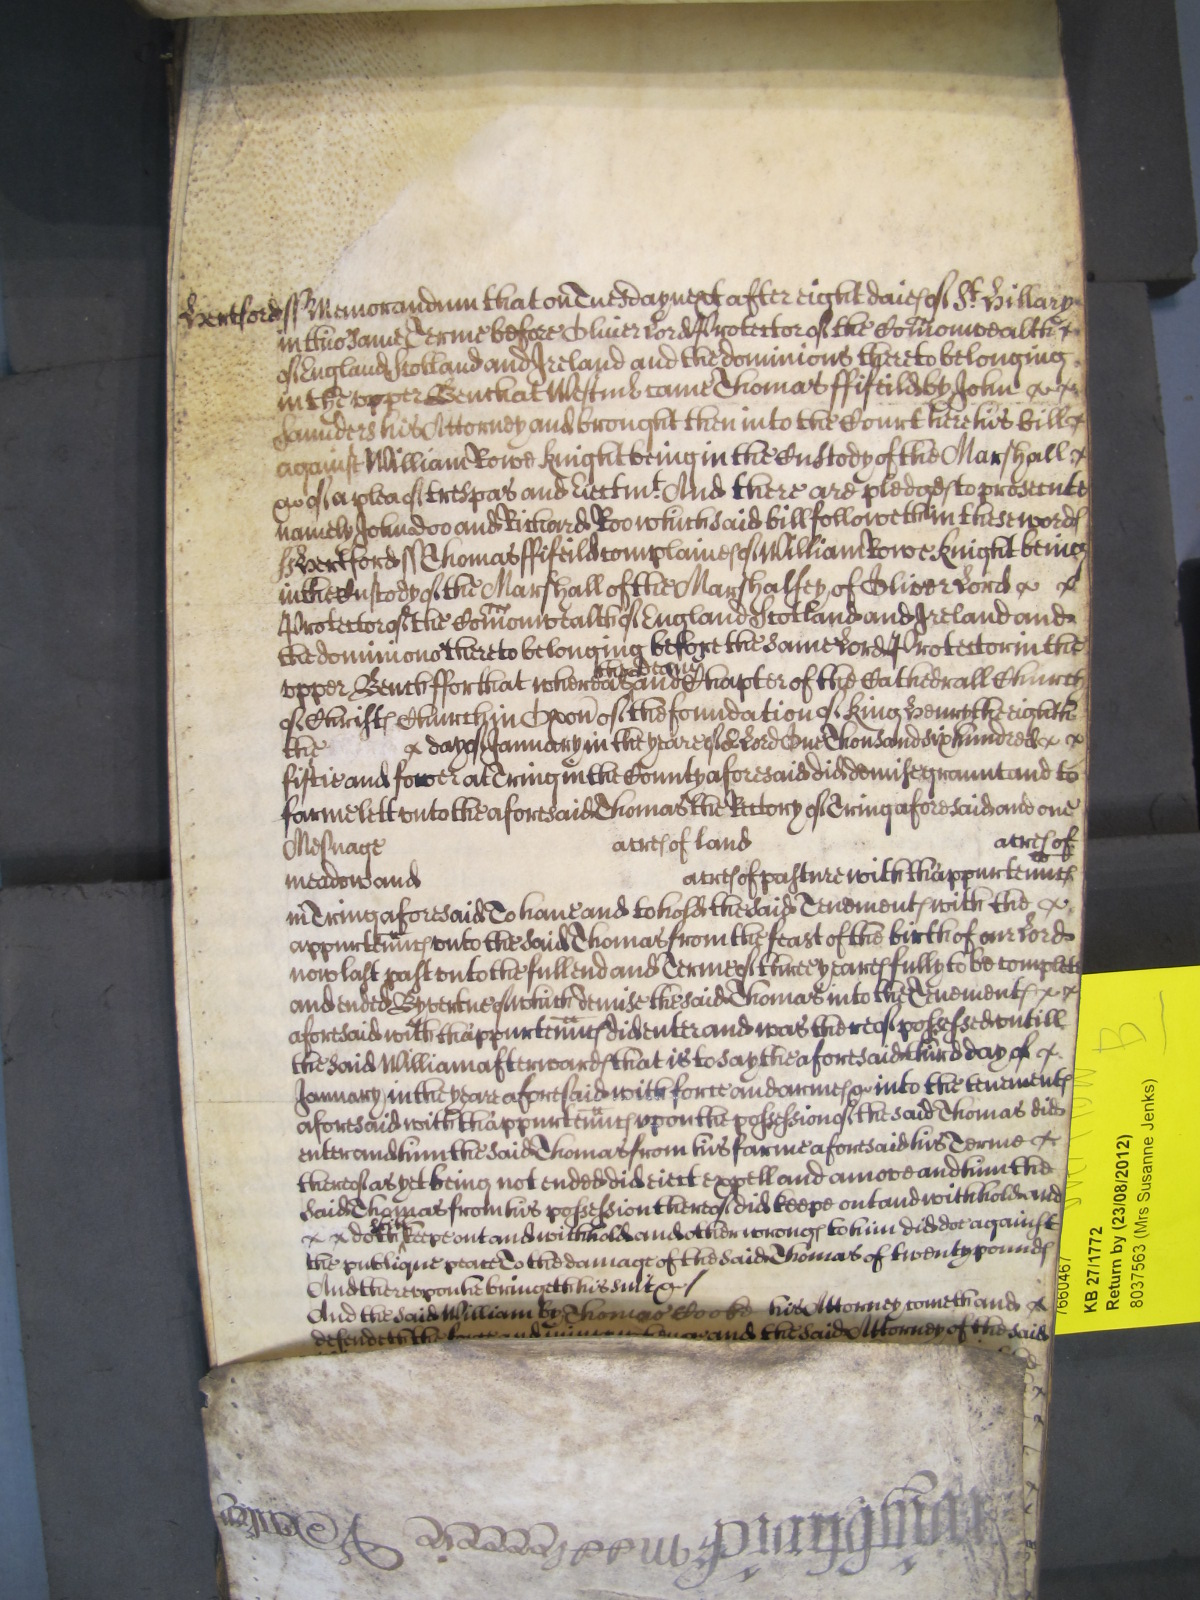 Hertford ss Memorandum that on Tuesday next after eight daies of St. Hillary
in this same Terme before Oliver Lord Protector of the Comonwealth
of England Scotland and Ireland and the dominions thereto belonging
in the upper Bench at Westm came Thomas ffifeild by John
Saunders his Attorney and brought then into the Court here his bill
against William Rowe knight being in the Custody of the Marshall
of a plea of trespas and Eectmt. And there are pledges to prosecute
namely John Doo and Richard Roo which said bill followeth in these words
ss Hertford ss Thomas ffifeild complaines of William Rowe knight being
in the Custody of the Marshall of the Marshalsey of Oliver Lord
Protector of the Comonwealth of England Scotland and Ireland and
the dominions thereto belonging before the same Lord Protector in the
upper Bench ffor that whereas the deane and Chapter of the Cathedrall Church
of Christs Church in Oxon of the foundation of king Henry the eighth
the day of January in the yeare of or Lord One Thousand six hundred
fiftie and fower at Tring in the County aforesaid did demise graunt and to
farme lett unto the aforesaid Thomas the Rectory of Tring aforesaid and one
Mesuage acres of land acres of
meadow and acres of pasture with thappurtennces
in Tring aforesaid To have and to hold the said Tenements with the
appurtennces unto the said Thomas from the feast of the birth of our Lord
now last past unto the full end and Terme of three yeares fully to be compleate
and ended By vertue of which demise the said Thomas into the Tenements
aforesaid with thappurtennces did enter and was thereof possessed untill
the said William afterwards that is to say the aforesaid third day of
January in the yeare aforesaid with force and armes &c into the tenements
aforesaid with thappurtennces upon the possession of the said Thomas did
enter and him the said Thomas from his farme aforesaid his Terme
thereof as yet being not ended did eiect expell and amove and him the
said Thomas from his possession thereof did keepe out and withhold and
doth still keepe out and withhold and other wrongs to him did doe against
the publique peace To the damage of the said Thomas of twenty pounds
And thereupon he bringeth his suit &c
And the said William by Thomas Cooke his Attorney cometh and
defendeth the force and iniury when &c and the said Attorney of the said
7660467
KB 27/1772
Return by (23/08/2012)
8037563 (Mrs Susanne Jenks)